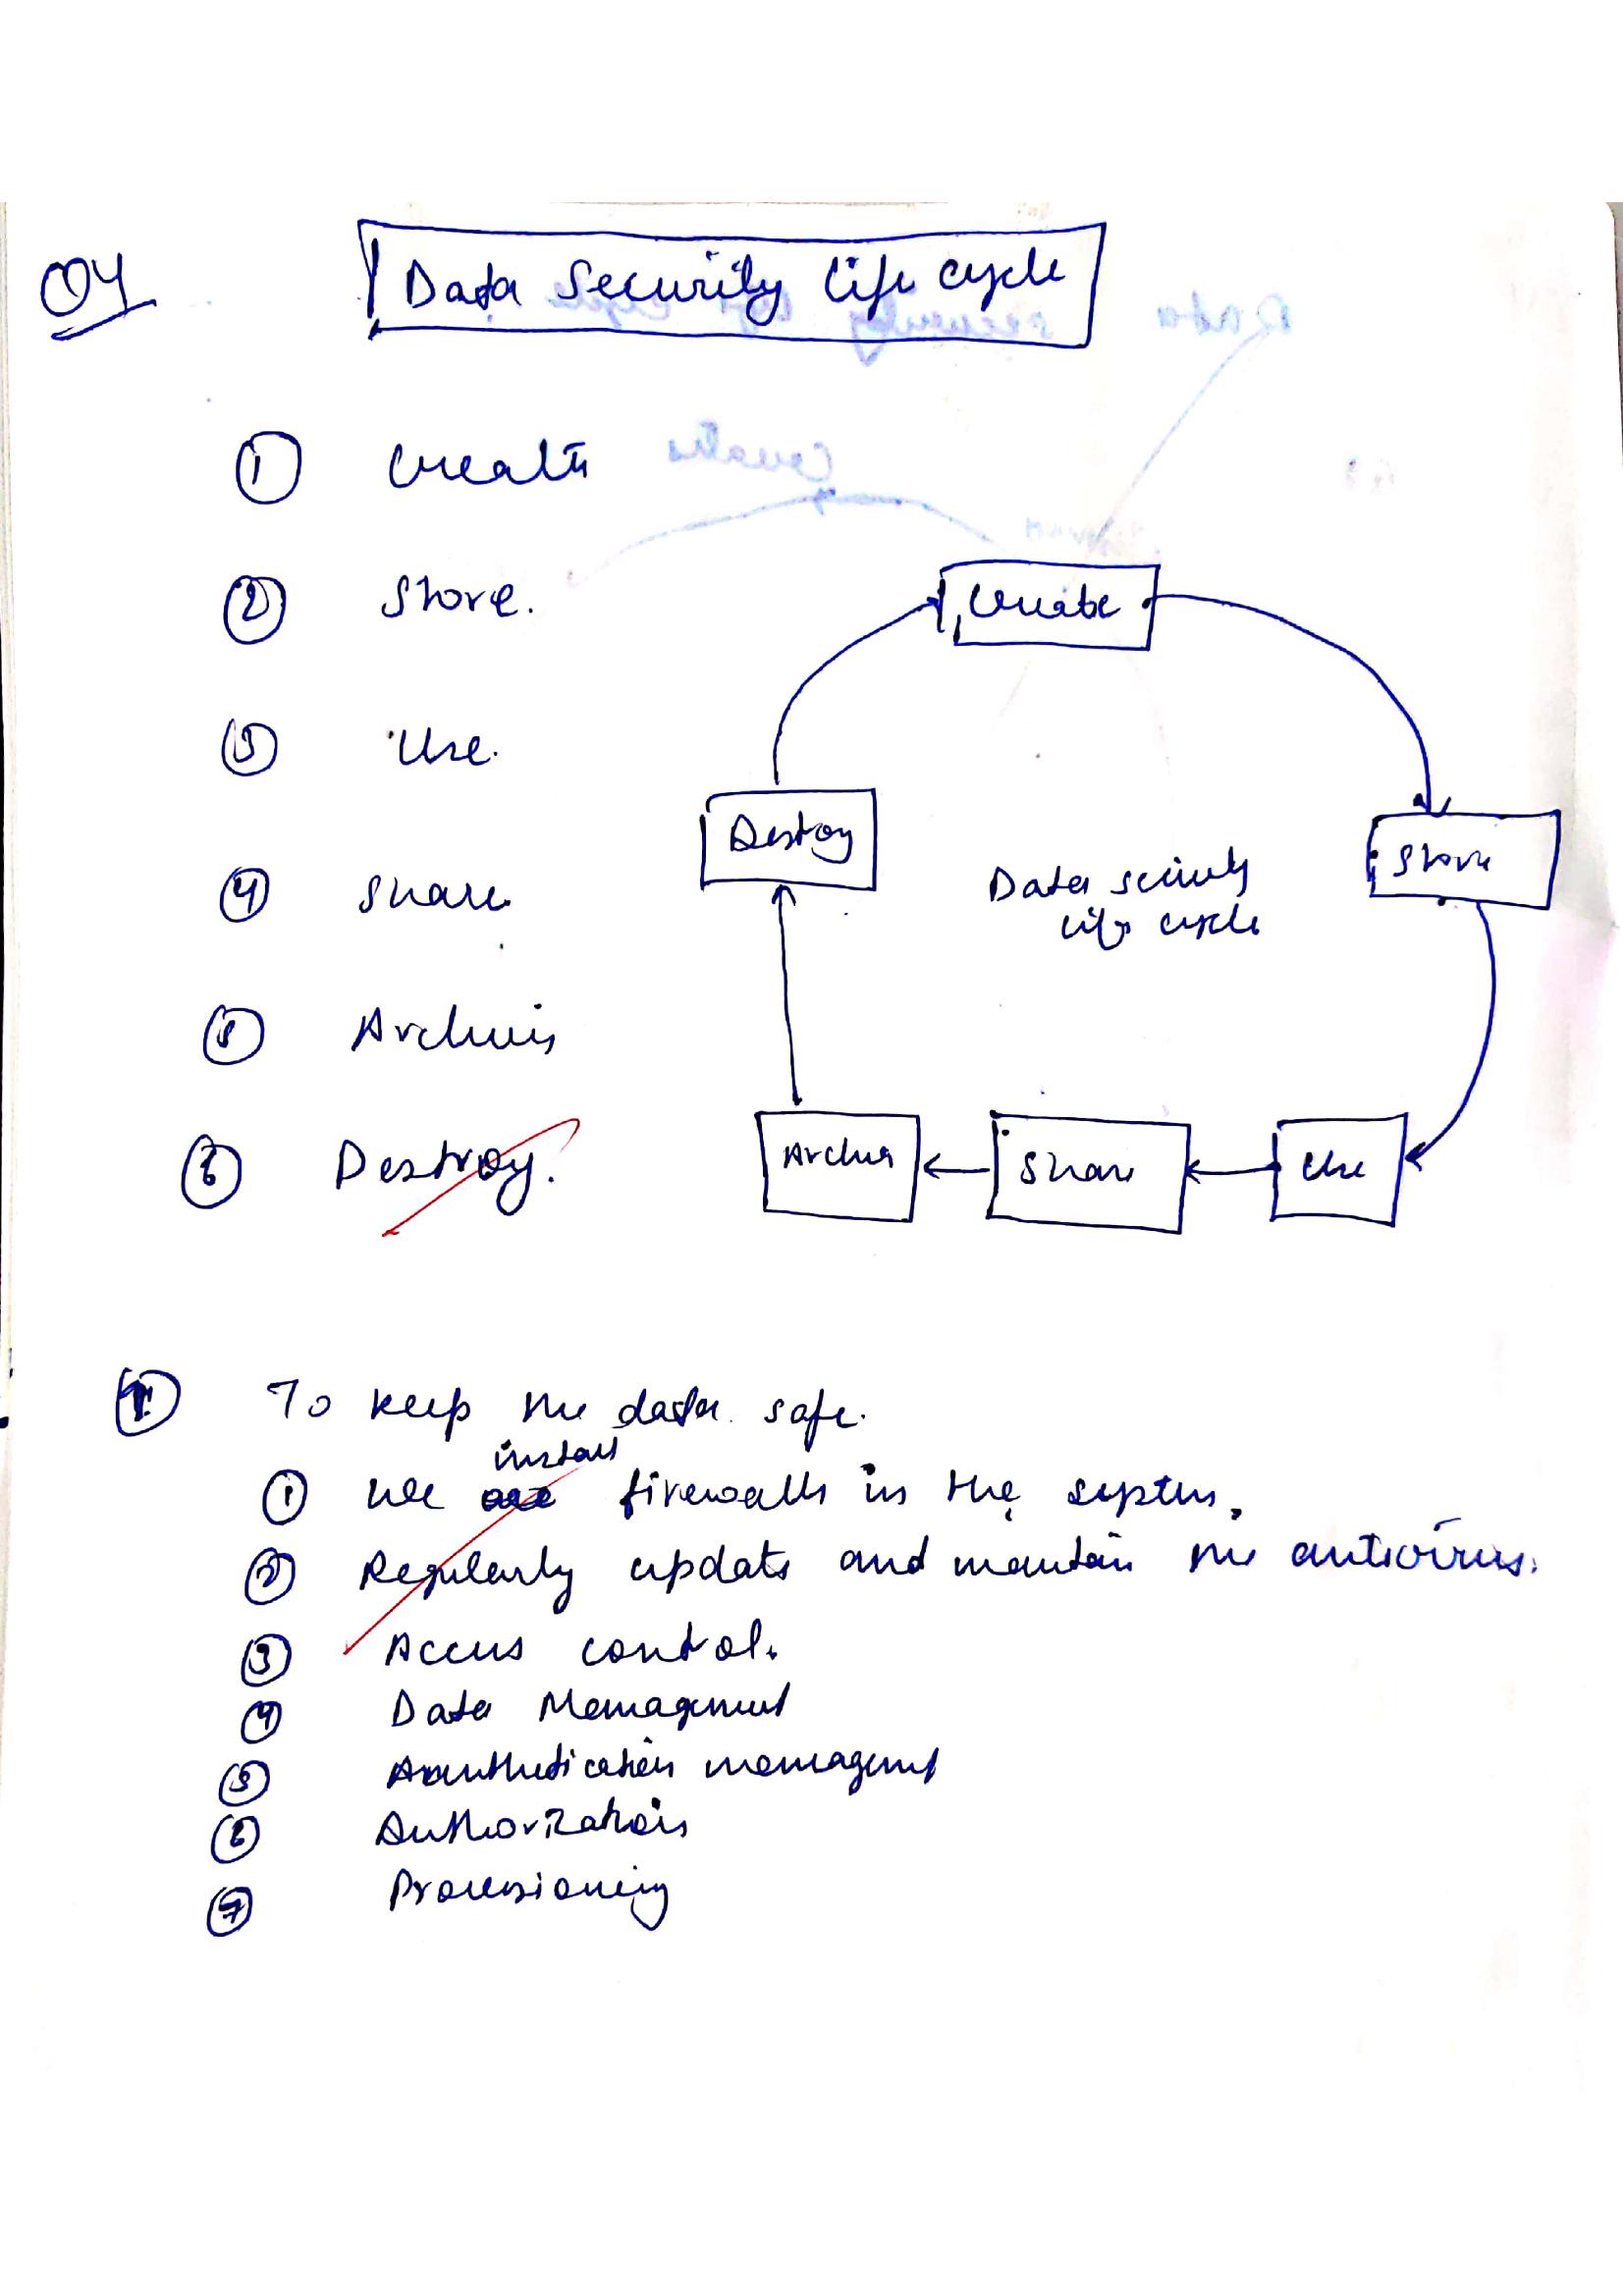 Q4
Data Security life cycle
① Create
② Store.
③ Use.
④ Share
⑤ Archive
⑥ Destroy.
Create
Store
Use
Share
Archive
Destroy
Data security
life cycle
To keep the data safe.
install
① We firewalls in the system.
② Regularly update and maintain the antivirus.
③ Access control.
④ Data Management
⑤ Authentication management
⑥ Authorization
⑦ Provisioning